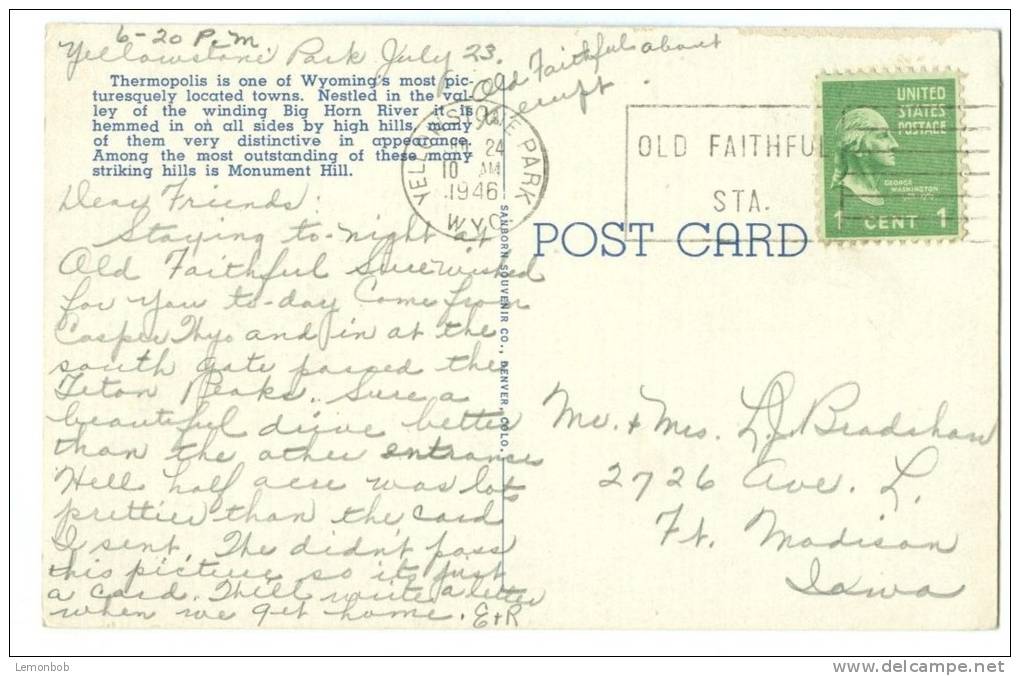 6-20 P.M.
Yellowstone Park July 23.
Old Faithful about
to erupt
Thermopolis is one of Wyoming's most pic-
turesquely located towns. Nestled in the val-
ley of the winding Big Horn River it is
hemmed in on all sides by high hills, many
of them very distinctive in appearance.
Among the most outstanding of these many
striking hills is Monument Hill.
YELLOWSTONE PARK
24
10 AM
1946
WYO
OLD FAITHFUL
STA.
UNITED
STATES
POSTAGE
GEORGE
WASHINGTON
1 CENT 1
Dear Friends:
Staying to-night at
Old Faithful Sure wished
for you to-day Come from
Casper Wyo and in at the
south gate passed the
Teton Peaks. Sure a
beautiful drive better
than the other entrances
Hell half acre was lots
prettier than the card
I sent. The didn't pass
this picture so its just
a card. Will write a letter
when we get home. E+R
SANBORN SOUVENIR CO., DENVER, COLO.
POST CARD
Mr. + Mrs. L.J. Bradshaw
2726 Ave. L.
Ft. Madison
Iowa
Lemonbob
http://www.delcampe.net